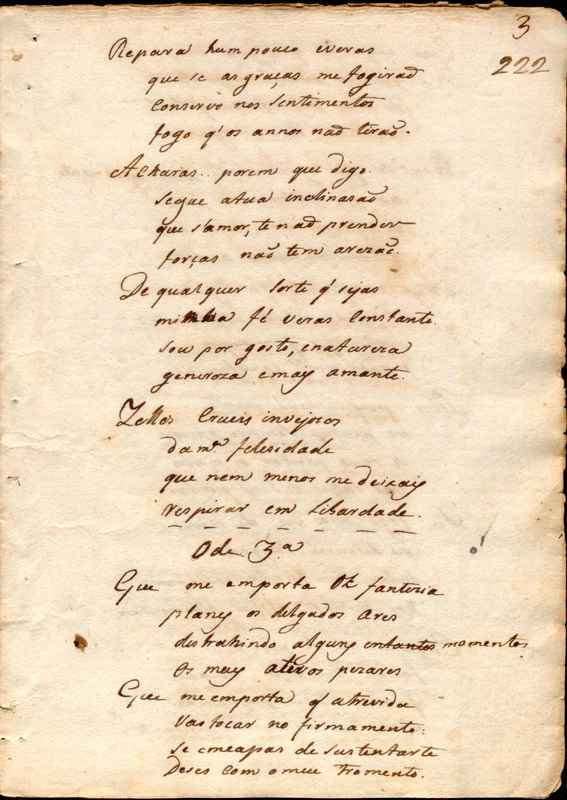 3
222
Repara hum pouco everas
que se as graças me fogiraõ
Conservo nos sentimentos
fogo q' os annos naõ tiraõ.
Acharas.. porem que digo.
segue atua inclinasaõ
que s'amor, te naõ prender
forças naõ tem arezaõ.
De qualquer sorte q' sejas
minha fé veras constante.
sou por gosto, enatureza
generoza emay amante.
Zellos Crueis invejosos
da mª felesidade
que nem menos me deixais
respirar em libardade.
Ode 3.ª
Que me emporta fantezia
planes os delgados ares
destrahindo alguns momentos
os meus ativos pezares
Que me emporta q' atrevida
Vas tocar no firmamento:
se emeapas de sustentarte
Deses com omeu tromento.